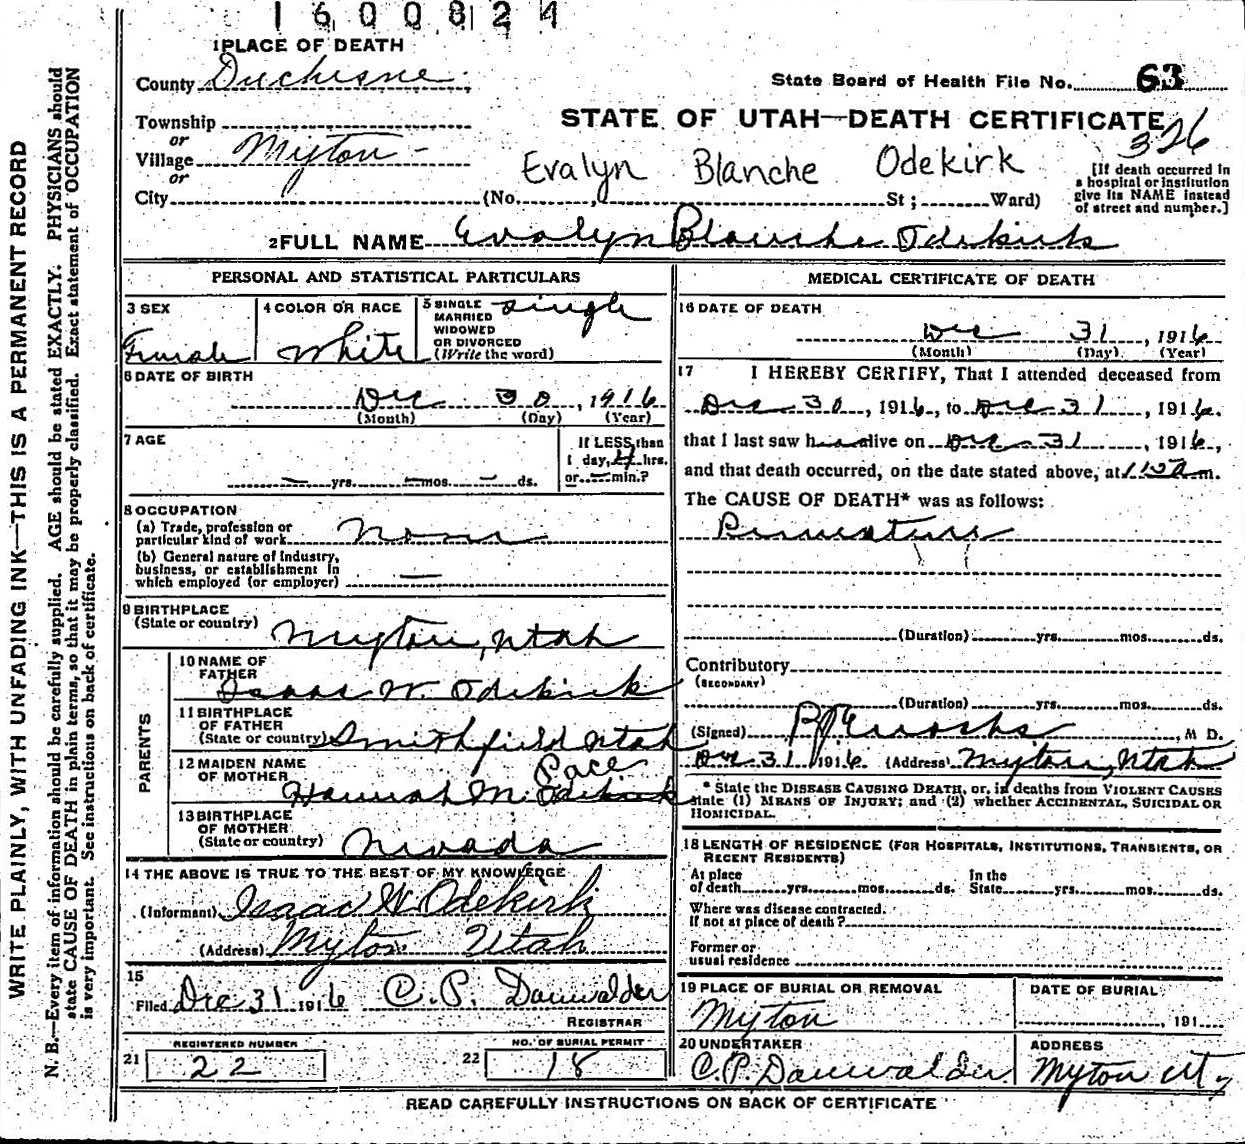 1600824
1 PLACE OF DEATH
County Duchesne
State Board of Health File No. 63
Township
STATE OF UTAH—DEATH CERTIFICATE
326
or
Village Myton -
or
Evalyn Blanche Odekirk
City (No. St; Ward)
[If death occurred in
a hospital or institution
give its NAME instead
of street and number.]
2 FULL NAME Evalyn Blanche Odekirk
PERSONAL AND STATISTICAL PARTICULARS
3 SEX
Female
4 COLOR OR RACE
White
5 SINGLE
MARRIED
WIDOWED
OR DIVORCED
(Write the word)
Single
6 DATE OF BIRTH
Dec 30, 1916
(Month) (Day) (Year)
7 AGE
— yrs. — mos. — ds.
If LESS than
1 day, 4 hrs.
or — min.?
8 OCCUPATION
(a) Trade, profession or
particular kind of work None
(b) General nature of industry,
business, or establishment in
which employed (or employer) —
9 BIRTHPLACE
(State or country) Myton, Utah
PARENTS
10 NAME OF
FATHER
Isaac W. Odekirk
11 BIRTHPLACE
OF FATHER
(State or country) Smithfield Utah
12 MAIDEN NAME
OF MOTHER
Pace
Hannah M. Odekirk
13 BIRTHPLACE
OF MOTHER
(State or country) Nevada
14 THE ABOVE IS TRUE TO THE BEST OF MY KNOWLEDGE
(Informant) Isaac W Odekirk
(Address) Myton Utah
15
Filed Dec 31 1916 C. P. Dauwalder
REGISTRAR
REGISTERED NUMBER
21 22
NO. OF BURIAL PERMIT
22 18
MEDICAL CERTIFICATE OF DEATH
16 DATE OF DEATH
Dec 31, 1916
(Month) (Day) (Year)
17 I HEREBY CERTIFY, That I attended deceased from
Dec 30, 1916, to Dec 31, 1916.
that I last saw h alive on Dec 31, 1916,
and that death occurred, on the date stated above, at m.
The CAUSE OF DEATH* was as follows:
Premature
(Duration) yrs. mos. ds.
Contributory
(SECONDARY)
(Duration) yrs. mos. ds.
(Signed) M D.
Dec 31 1916 (Address) Myton, Utah
* State the DISEASE CAUSING DEATH, or, in deaths from VIOLENT CAUSES
state (1) MEANS OF INJURY; and (2) whether ACCIDENTAL, SUICIDAL OR
HOMICIDAL.
18 LENGTH OF RESIDENCE (FOR HOSPITALS, INSTITUTIONS, TRANSIENTS, OR
RECENT RESIDENTS)
At place
of death yrs. mos. ds.
In the
State yrs. mos. ds.
Where was disease contracted.
If not at place of death?
Former or
usual residence
19 PLACE OF BURIAL OR REMOVAL
Myton
DATE OF BURIAL
, 191
20 UNDERTAKER
C. P. Dauwalder
ADDRESS
Myton Ut
READ CAREFULLY INSTRUCTIONS ON BACK OF CERTIFICATE
WRITE PLAINLY, WITH UNFADING INK—THIS IS A PERMANENT RECORD
N. B.—Every item of information should be carefully supplied. AGE should be stated EXACTLY. PHYSICIANS should
state CAUSE OF DEATH in plain terms, so that it may be properly classified. Exact statement of OCCUPATION
is very important. See instructions on back of certificate.